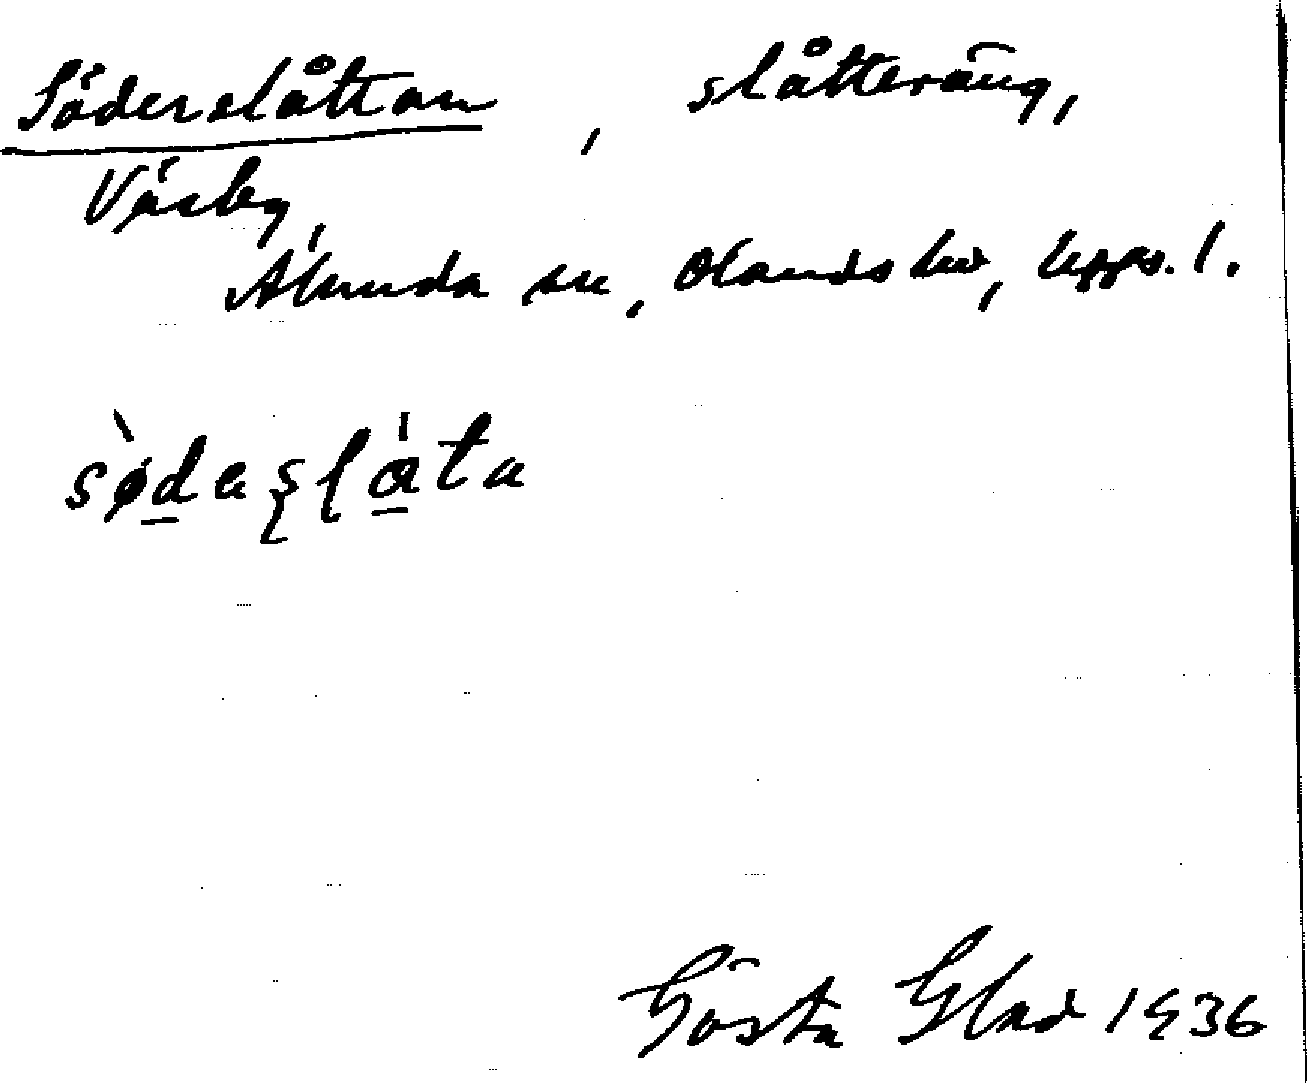 Söderslåttan, slåtteräng,
Väsby,
Alunda sn, Olands hd, Upps. l.
Gösta Glad 1936